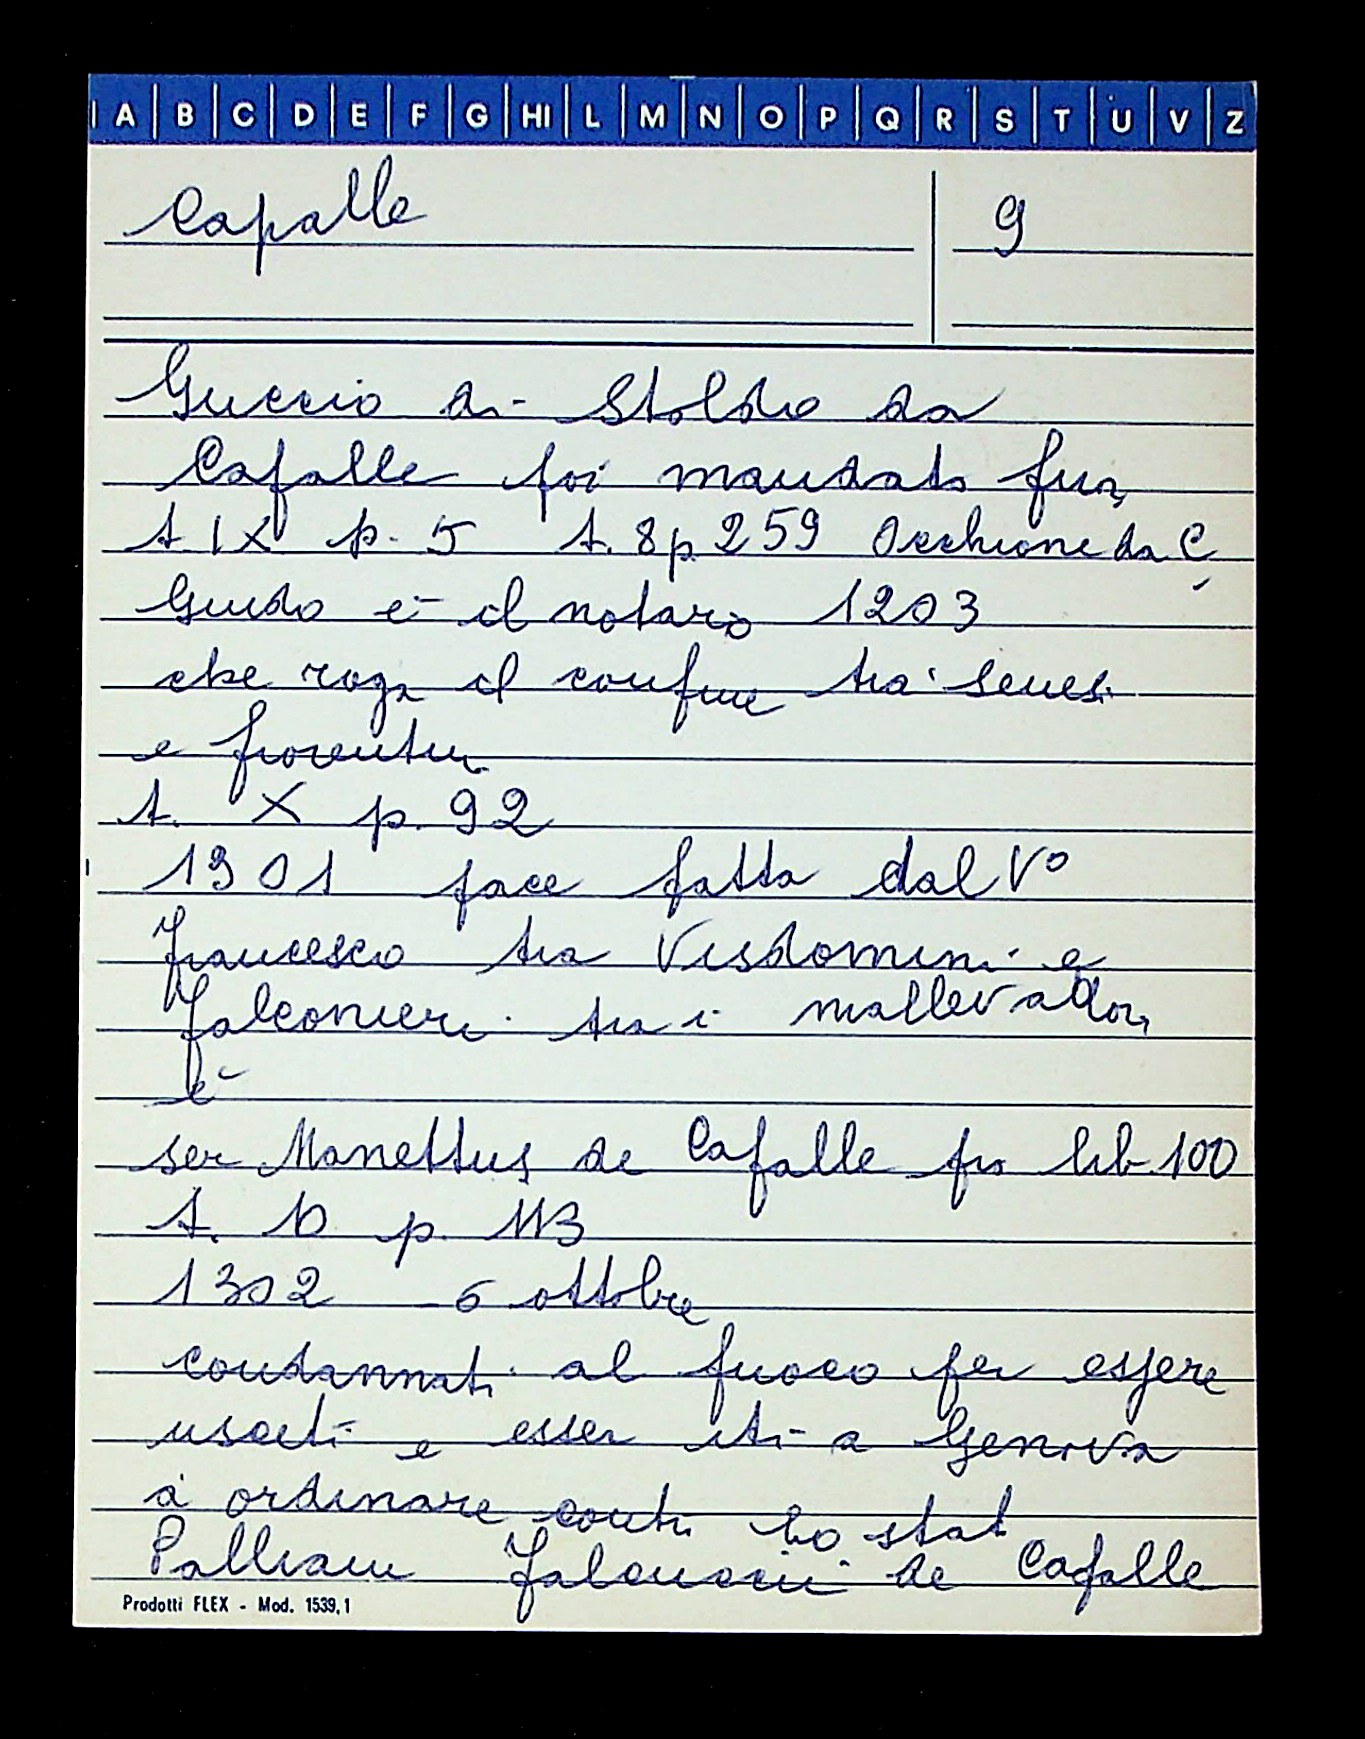 A B C D E F G HI L M N O P Q R S T U V Z
Capalle 9
Guccio di Stoldo da
Capalle poi mandato fuor
t. IX p. 5 t. 8 p 259 Occhione da C.
Guido è il notaro 1203
che roga il confine tra senesi
e fiorentini
t. X p. 92
1301 pace fatta dal Vo
Francesco tra Visdomini e
Falconieri tra i mallevadori
è
ser Manettus de Capalle pro lib 100
t. 10 p. 113
1302 6 ottobre
condannati al fuoco per essere
usciti e esser iti a Genova
a ordinare contro lo stat
Palliam de Capalle
Prodotti FLEX - Mod. 1539,1